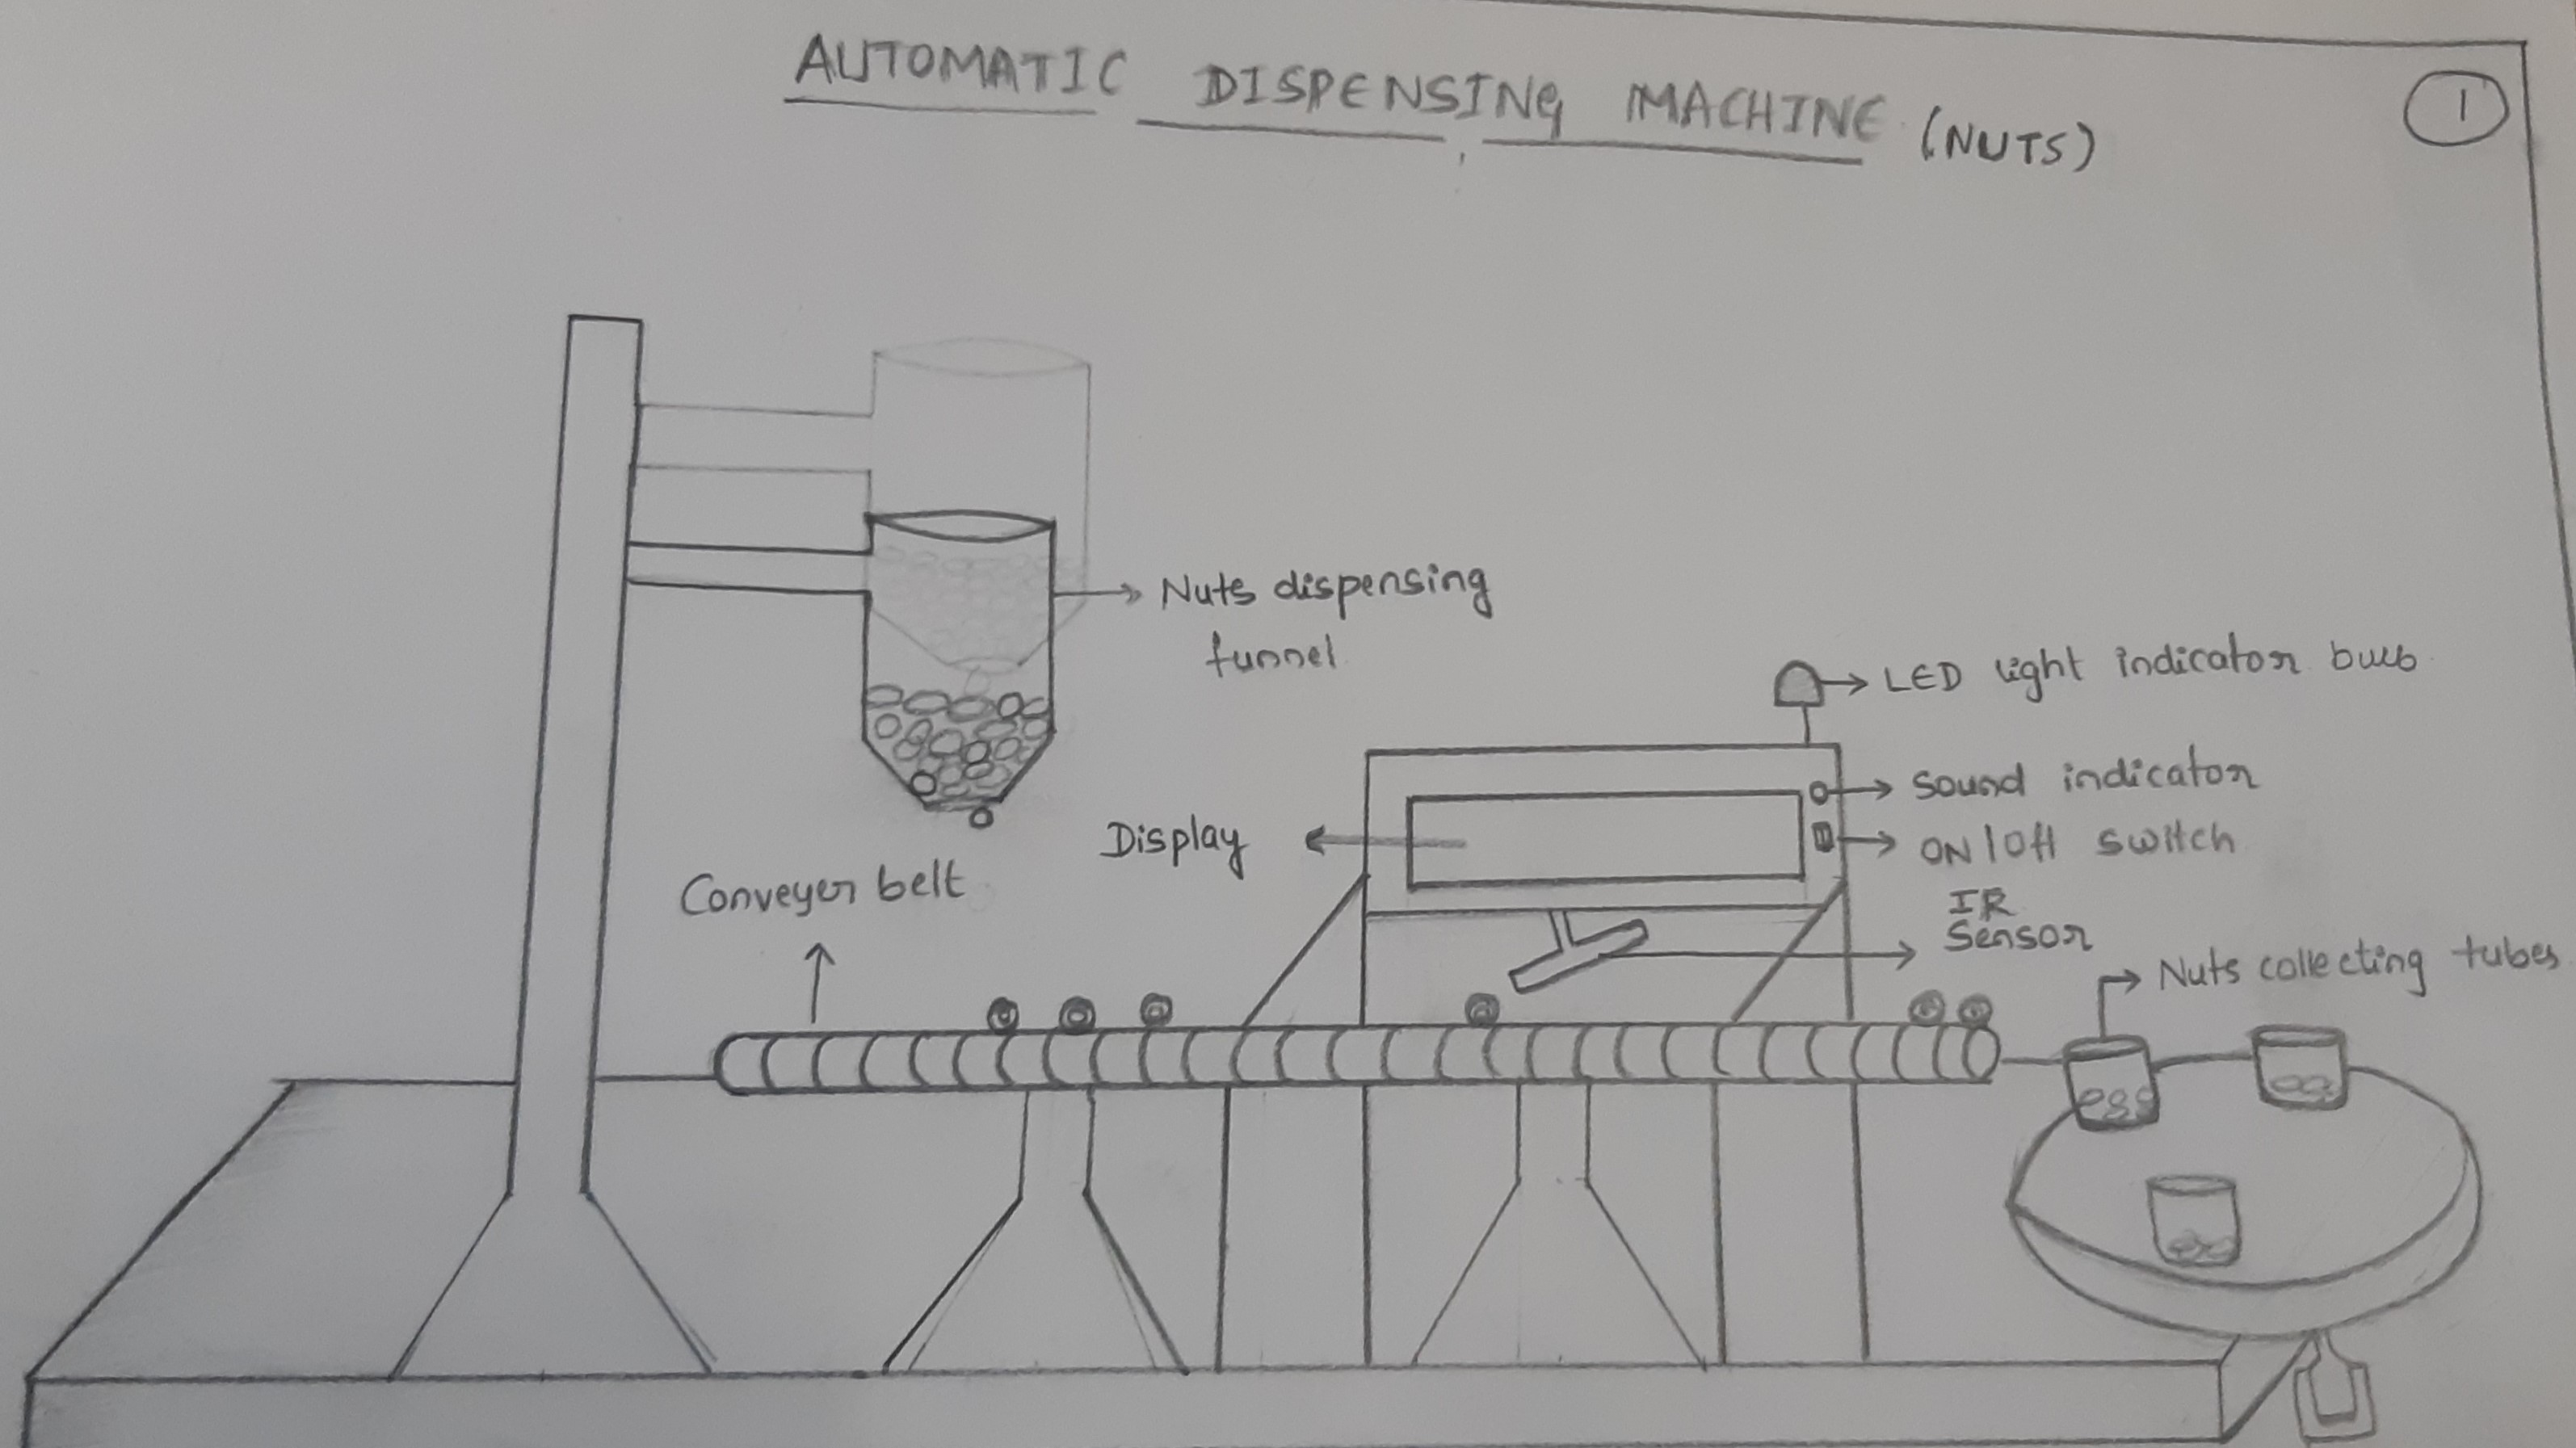 AUTOMATIC DISPENSING MACHINE (NUTS)
1
Nuts dispensing
funnel
LED light indicator bulb
Sound indicator
Display
ON/Off switch
Conveyer belt
IR
Sensor
Nuts collecting tubes